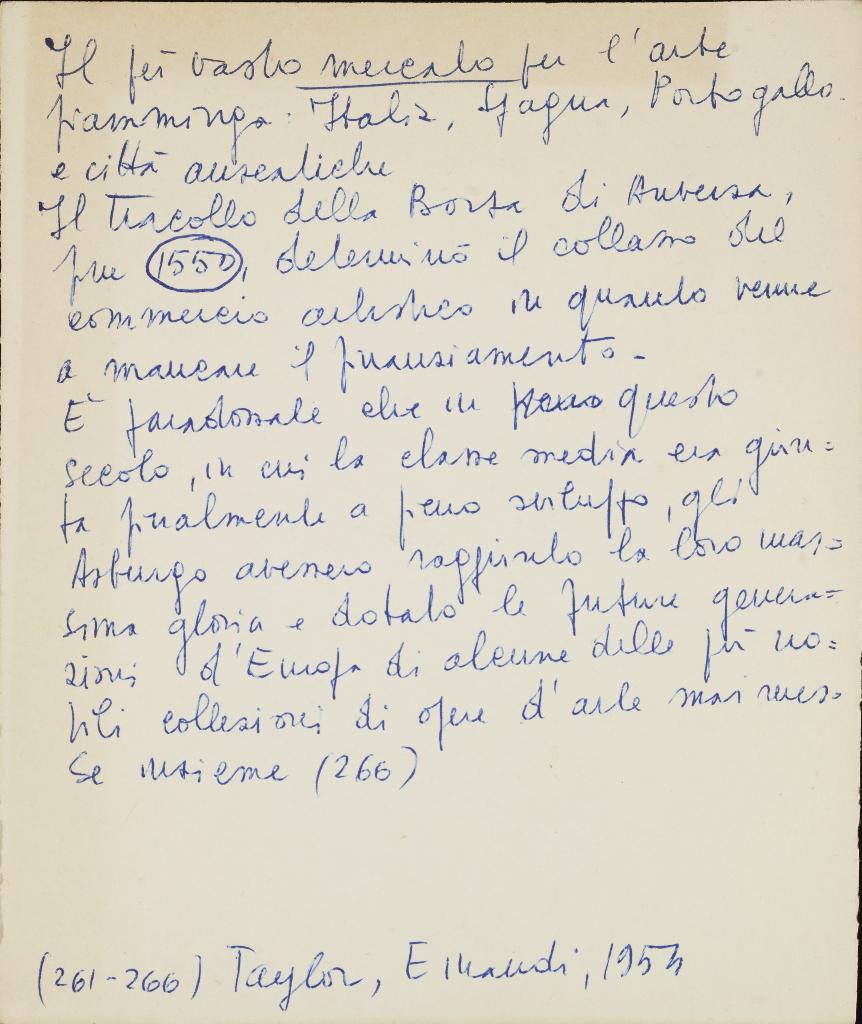 Il più vasto mercato per l'arte
fiamminga: Italia, Spagna, Portogallo
e città anseatiche
Il tracollo della Borsa di Anversa,
fine 1550, determinò il collasso del
commercio artistico in quanto venne
a mancare il finanziamento.
È paradossale che in questo
secolo, in cui la classe media era giun=
ta finalmente a pieno sviluppo, gli
Asburgo avessero raggiunto la loro mas=
sima gloria e dotato le future genera=
zioni d'Europa di alcune delle più no=
bili collezioni di opere d'arte mai mes=
se insieme (266)
(261-266) Taylor, Einaudi, 1954